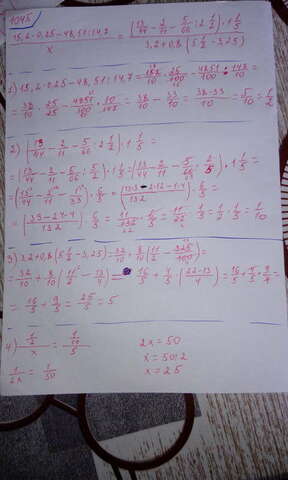 1045
(15,2·0,25-48,51:14,7)/x = ((13/44 - 2/11 - 5/66 : 2 1/2)·1 1/5)/(3,2+0,8(5 1/2 - 3,25)
1) 15,2·0,25-48,51:14,7 = 152/10 · 25/100 - 4851/100 : 147/10 =
= 38/10 · 25/25 - 4851/100 · 10/147 = 38/10 - 33/10 = 38-33/10 = 5/10 = 1/2
2) (13/44 - 2/11 - 5/66 : 2 1/2)·1 1/5 =
= (13/44 - 2/11 - 5/66 : 5/2)·1 1/5 = (13/44 - 2/11 - 5/66 · 2/5)·1 1/5 =
= (13/44 - 2/11 - 1/33)·6/5 = (13·3-2·12-1·4/132)·6/5 =
= (39-24-4/132)·6/5 = 11/132 · 6/5 = 11/22 · 1/5 = 1/2 · 1/5 = 1/10
3) 3,2+0,8(5 1/2 - 3,25) = 32/10 + 8/10 (11/2 - 325/100) =
= 32/10 + 8/10 (11/2 - 13/4) = 16/5 + 4/5 · (22-13/4) = 16/5 + 4/5 · 9/4 =
= 16/5 + 9/5 = 25/5 = 5
4) (1/2)/x = (1/10)/5
1/2x = 1/50
2x = 50
x = 50:2
x = 25